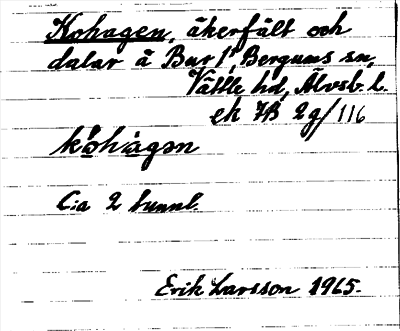 Kohagen, åkerfält och
dalar å Bur 1¹, Bergums sn,
Vättle hd, Älvsb. l.
ek 7B 2g/116
kóhàgən
C:a 2 tunnl.
Erik Larsson 1965.